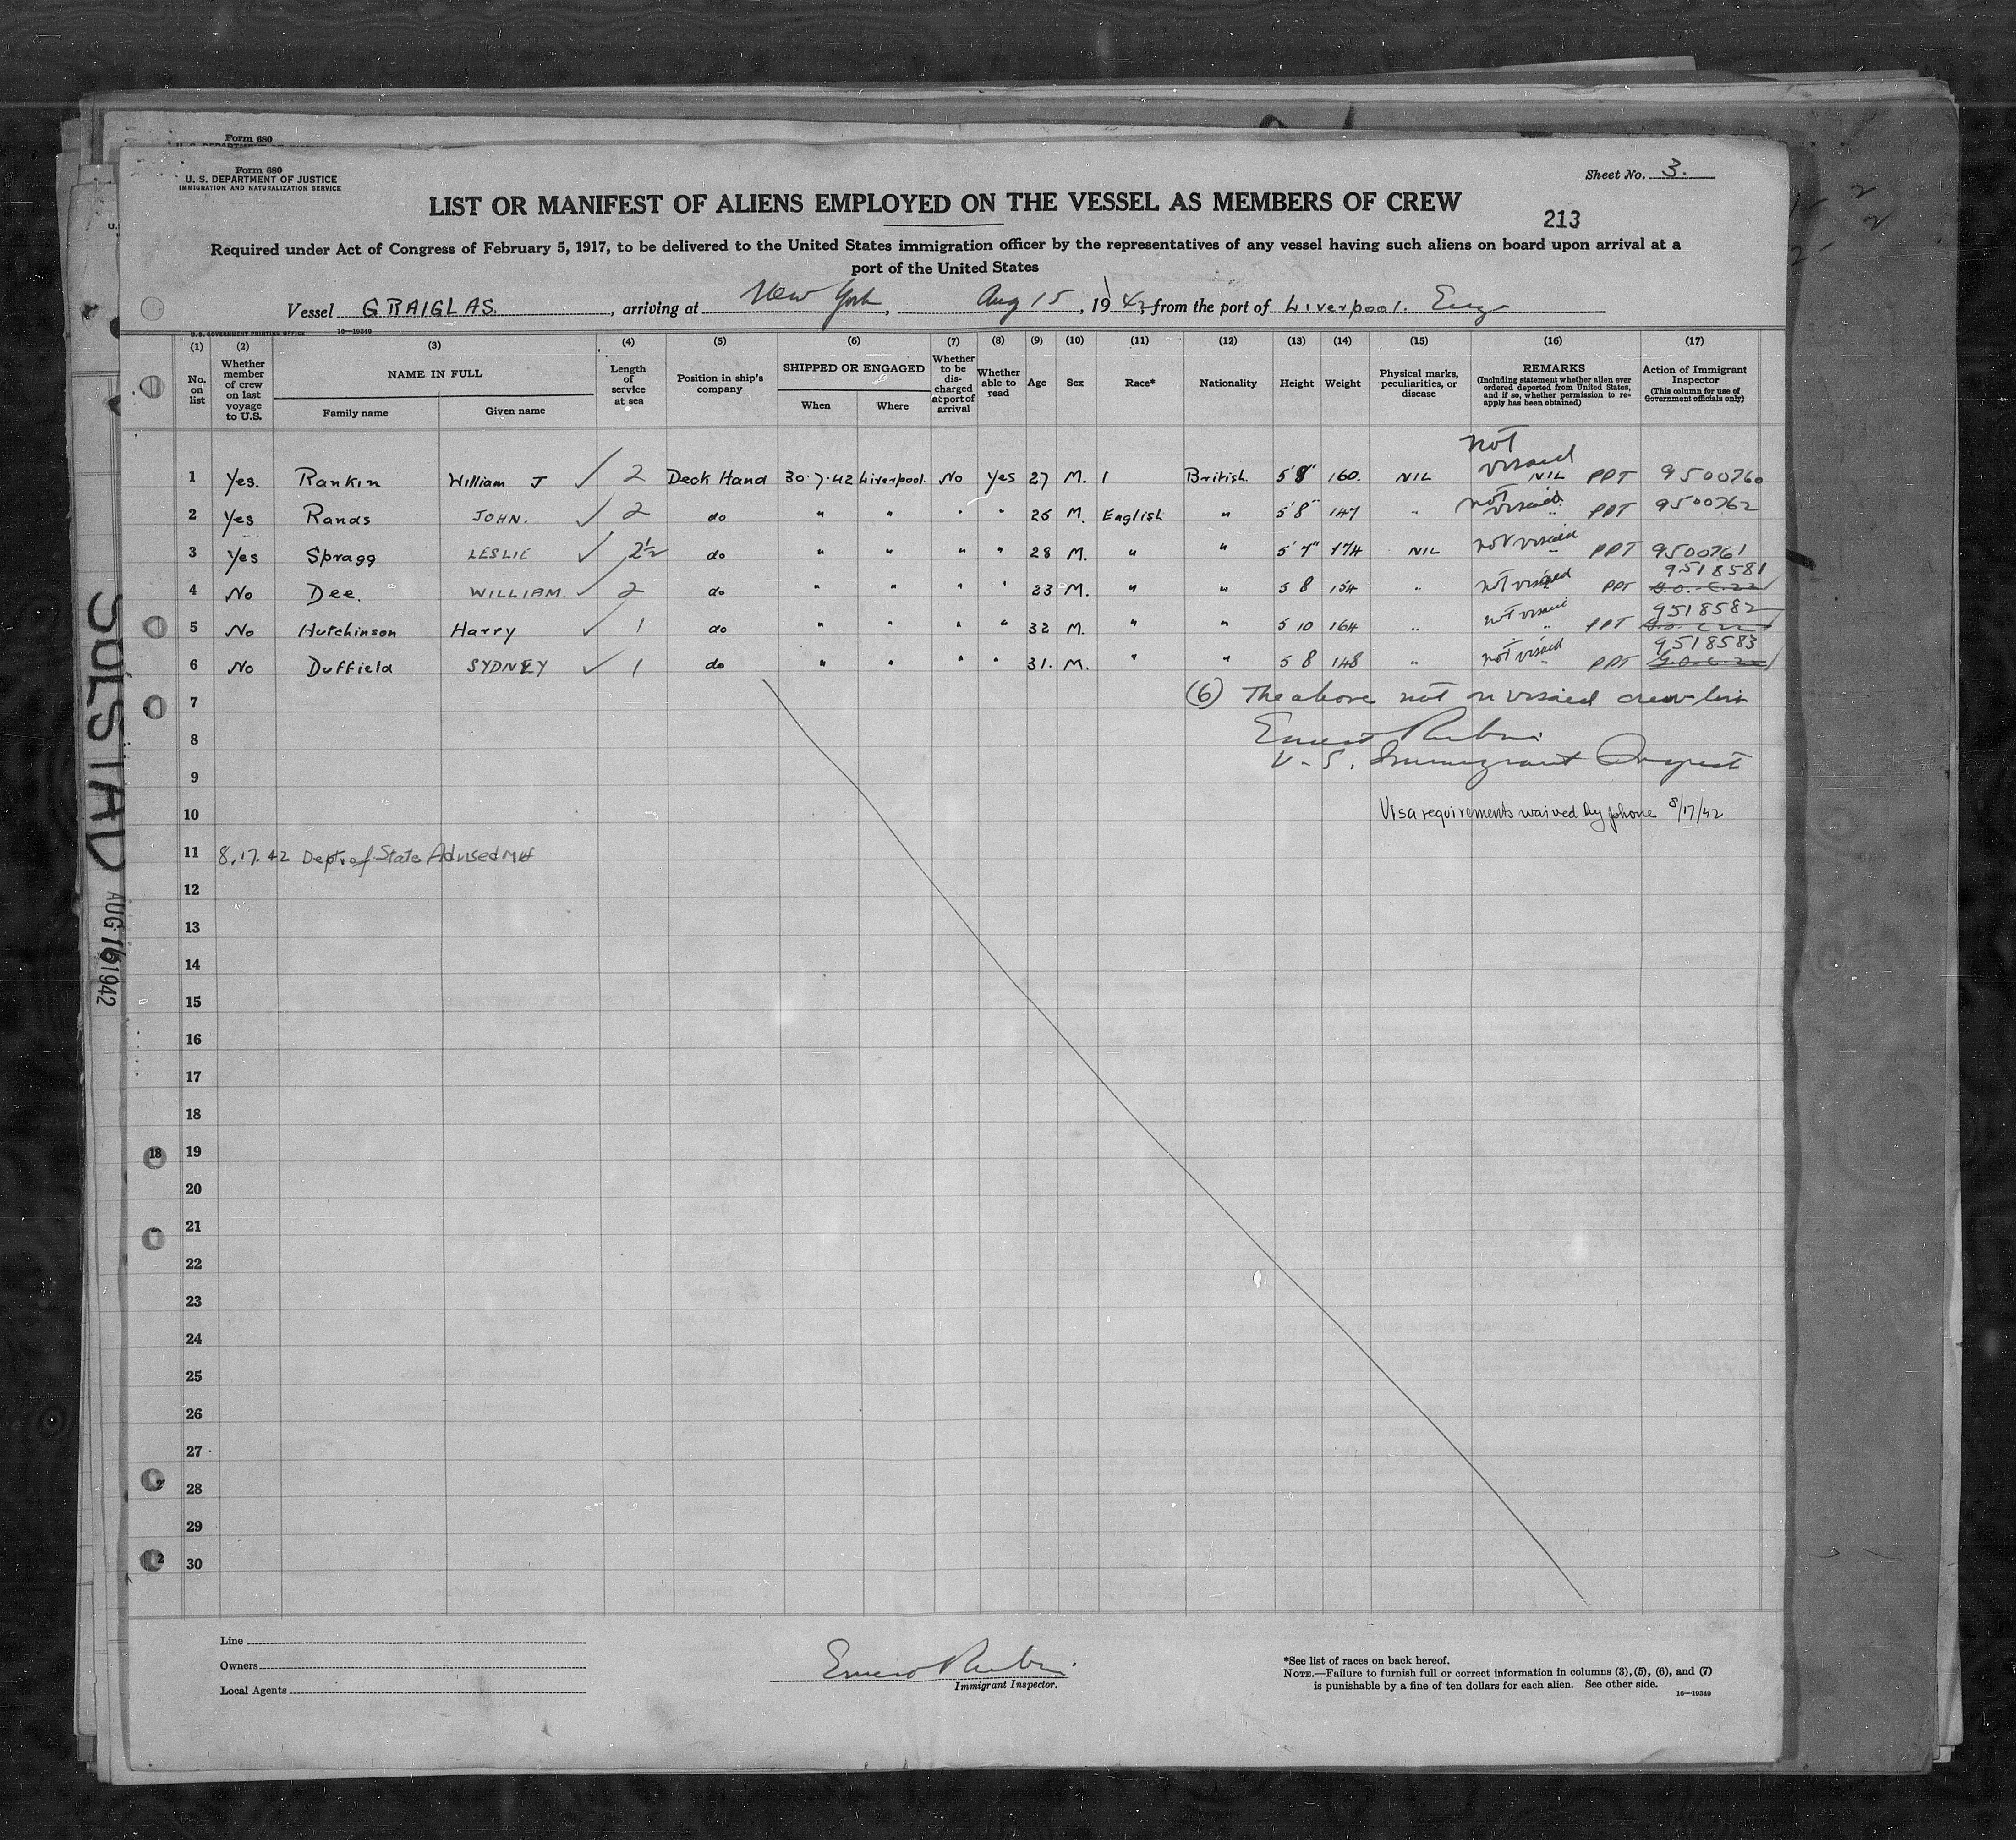 Form 680
Form 680
U. S. DEPARTMENT OF JUSTICE
IMMIGRATION AND NATURALIZATION SERVICE
Sheet No. 3.
LIST OR MANIFEST OF ALIENS EMPLOYED ON THE VESSEL AS MEMBERS OF CREW
213
Required under Act of Congress of February 5, 1917, to be delivered to the United States immigration officer by the representatives of any vessel having such aliens on board upon arrival at a
port of the United States
Vessel GRAIGLAS. , arriving at New York , Aug 15 , 1942, from the port of Liverpool. Eng
U. S. GOVERNMENT PRINTING OFFICE 16—19349
(1) (2) (3) (4) (5) (6) (7) (8) (9) (10) (11) (12) (13) (14) (15) (16) (17)
No. on list
Whether member of crew on last voyage to U.S.
NAME IN FULL
Family name
Given name
Length of service at sea
Position in ship's company
SHIPPED OR ENGAGED
When
Where
Whether to be discharged at port of arrival
Whether able to read
Age
Sex
Race*
Nationality
Height
Weight
Physical marks, peculiarities, or disease
REMARKS
(Including statement whether alien ever ordered deported from United States, and if so, whether permission to reapply has been obtained)
Action of Immigrant Inspector
(This column for use of Government officials only)
not
visaed
1 Yes. Rankin William J ✓ 2 Deck Hand 30.7.42 Liverpool. No Yes 27 M. British. 5'8" 160. NIL NIL PPT 9500760
2 Yes Rands JOHN. ✓ 2 do " " " " 26 M. English " 5'8" 147 " not visaed " PPT 9500762
3 Yes Spragg LESLIE ✓ 2½ do " " " " 28 M. " " 5'7" 174 NIL not visaed " PPT 9500761
4 No Dee. WILLIAM. ✓ 2 do " " " " 23 M. " " 5 8 154 " not visaed PPT 9518581
5 No Hutchinson Harry ✓ 1 do " " " " 32 M. " " 5 10 164 " not visaed " PPT 9518582
6 No Duffield SYDNEY ✓ 1 do " " " " 31. M. " " 5 8 148 " not visaed " PPT 9518583
7 (6) The above not on visaed crew list
8 Ernest Rubin
U. S. Immigrant Inspect
9
10 Visa requirements waived by phone 8/17/42
11 8.17.42 Dept. of State Advised
12
13
14
15
16
17
18
19
20
21
22
23
24
25
26
27
28
29
30
SOLSTAD
AUG 16 1942
18
2
Line
Owners
Local Agents
Ernest Rubin
Immigrant Inspector.
*See list of races on back hereof.
NOTE.—Failure to furnish full or correct information in columns (3), (5), (6), and (7)
is punishable by a fine of ten dollars for each alien. See other side.
16—19349